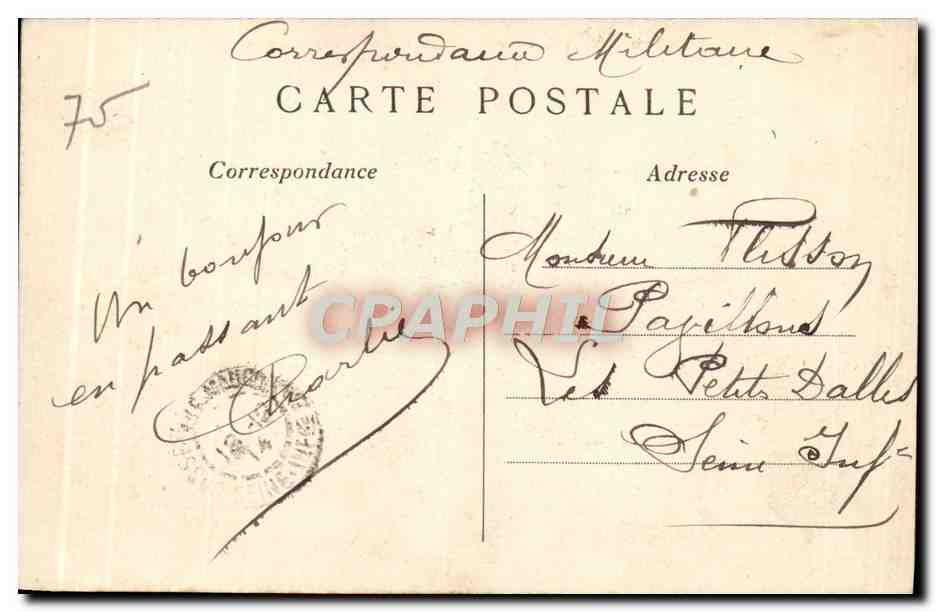 Correspondance Militaire
75
CARTE POSTALE
Correspondance
Adresse
Un bonjour
en passant
Charles
Monsieur Plisson
Pavillons
Les Petits Dalles
Seine Infre
CPAPHIL
SEINE-INFRE